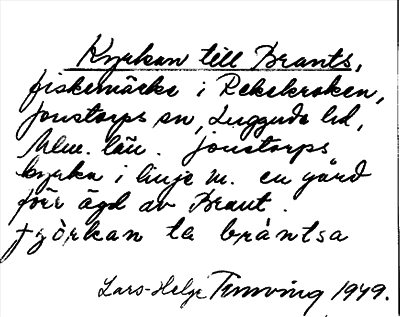 Kyrkan till Brants,
fiskemärke i Rekekroken,
Jonstorps sn, Luggude hd,
Mlm. län. Jonstorps
kyrka i linje m. en gård
förr ägd av Brant.
Lars-Helge 1949.